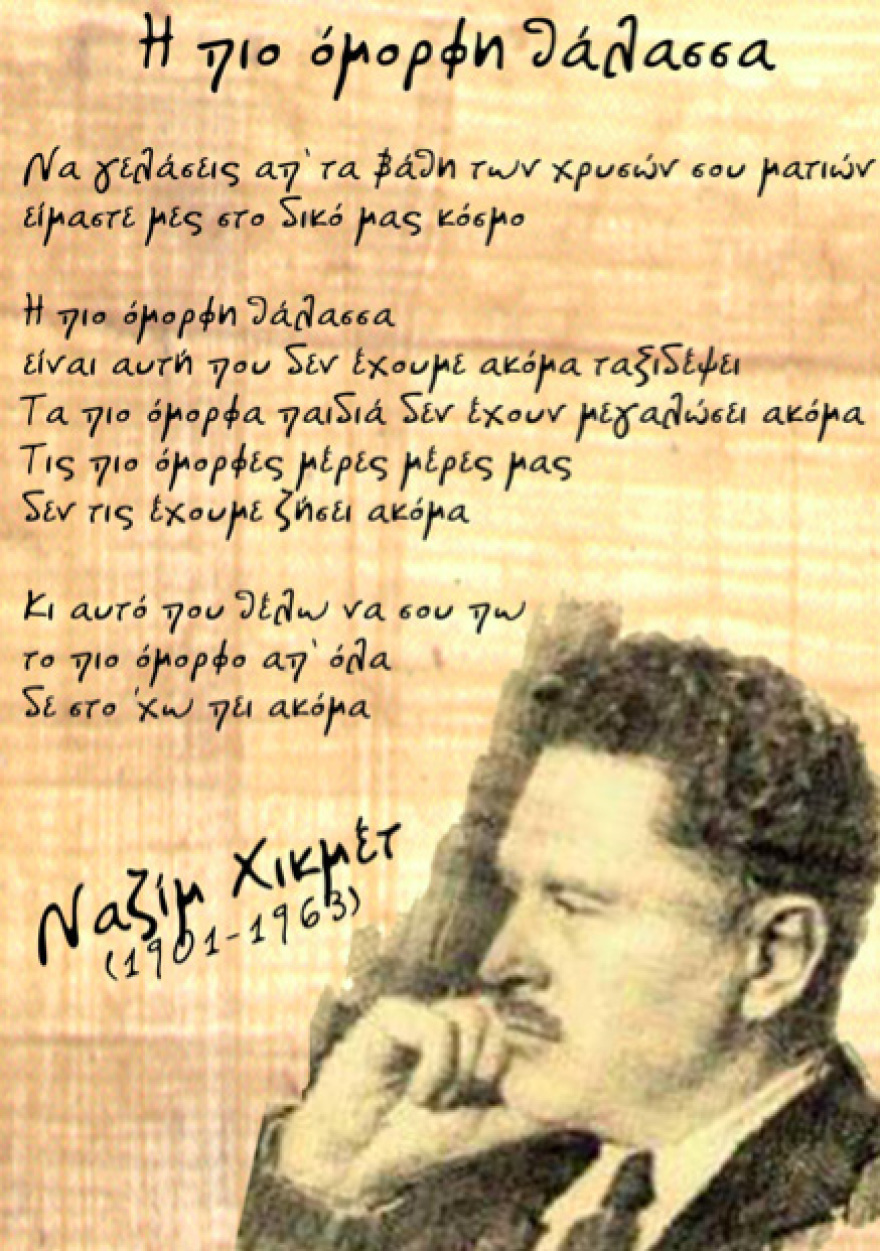 Η πιο όμορφη θάλασσα
Να γελάσεις απ' τα βάθη των χρυσών σου ματιών
είμαστε μες στο δικό μας κόσμο
Η πιο όμορφη θάλασσα
είναι αυτή που δεν έχουμε ακόμα ταξιδέψει
Τα πιο όμορφα παιδιά δεν έχουν μεγαλώσει ακόμα
Τις πιο όμορφες μέρες μέρες μας
δεν τις έχουμε ζήσει ακόμα
Κι αυτό που θέλω να σου πω
το πιο όμορφο απ' όλα
δε στο 'χω πει ακόμα
Ναζίμ Χικμέτ
(1901-1963)